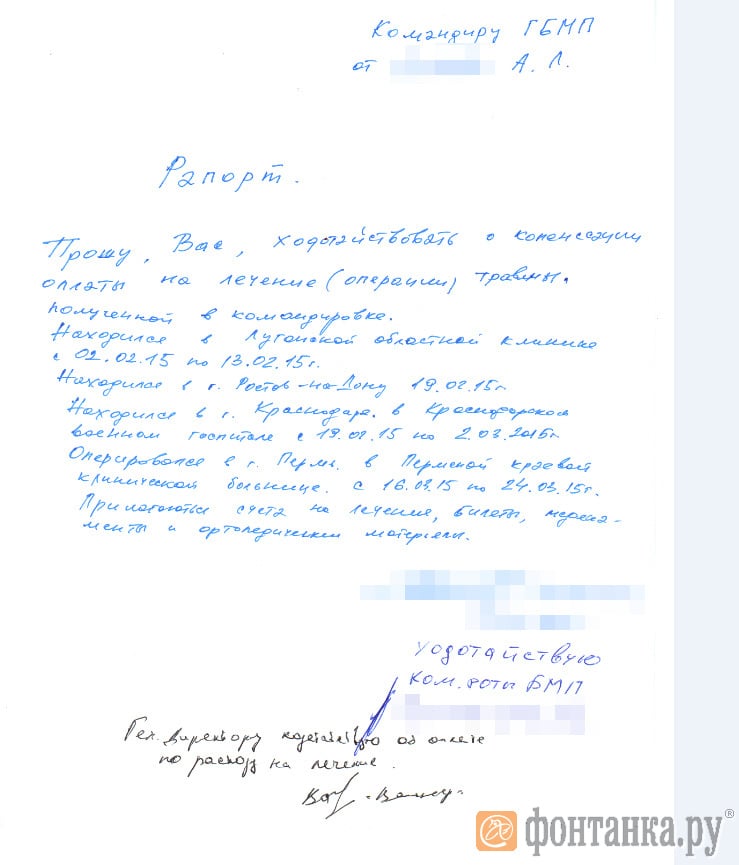 Командиру ГБМП
от А. Л.
Рапорт.
Прошу, Вас, ходотайствовать о копенсации
оплаты на лечение (операции) травмы.
полученной в командировке.
Находился в Луганской областной клинике
с 02.02.15 по 13.02.15г.
Находился в г. Ростов-на-Дону 19.02.15г
Находился в г. Краснодаре. в Краснодарском
военном госпитале с 19.02.15 по 2.03.2015г
Оперировался в г. Пермь. в Пермской краевой
клинической больнице. с 16.03.15 по 24.03.15г.
Прилагаються счета на лечение, билеты, медека-
менты и ортопедические материалы.
Ходотайствую
Ком. роты БМП
Ген. Директору ходатайствую об оплате
по расходу на лечение.
фонтанка.ру®